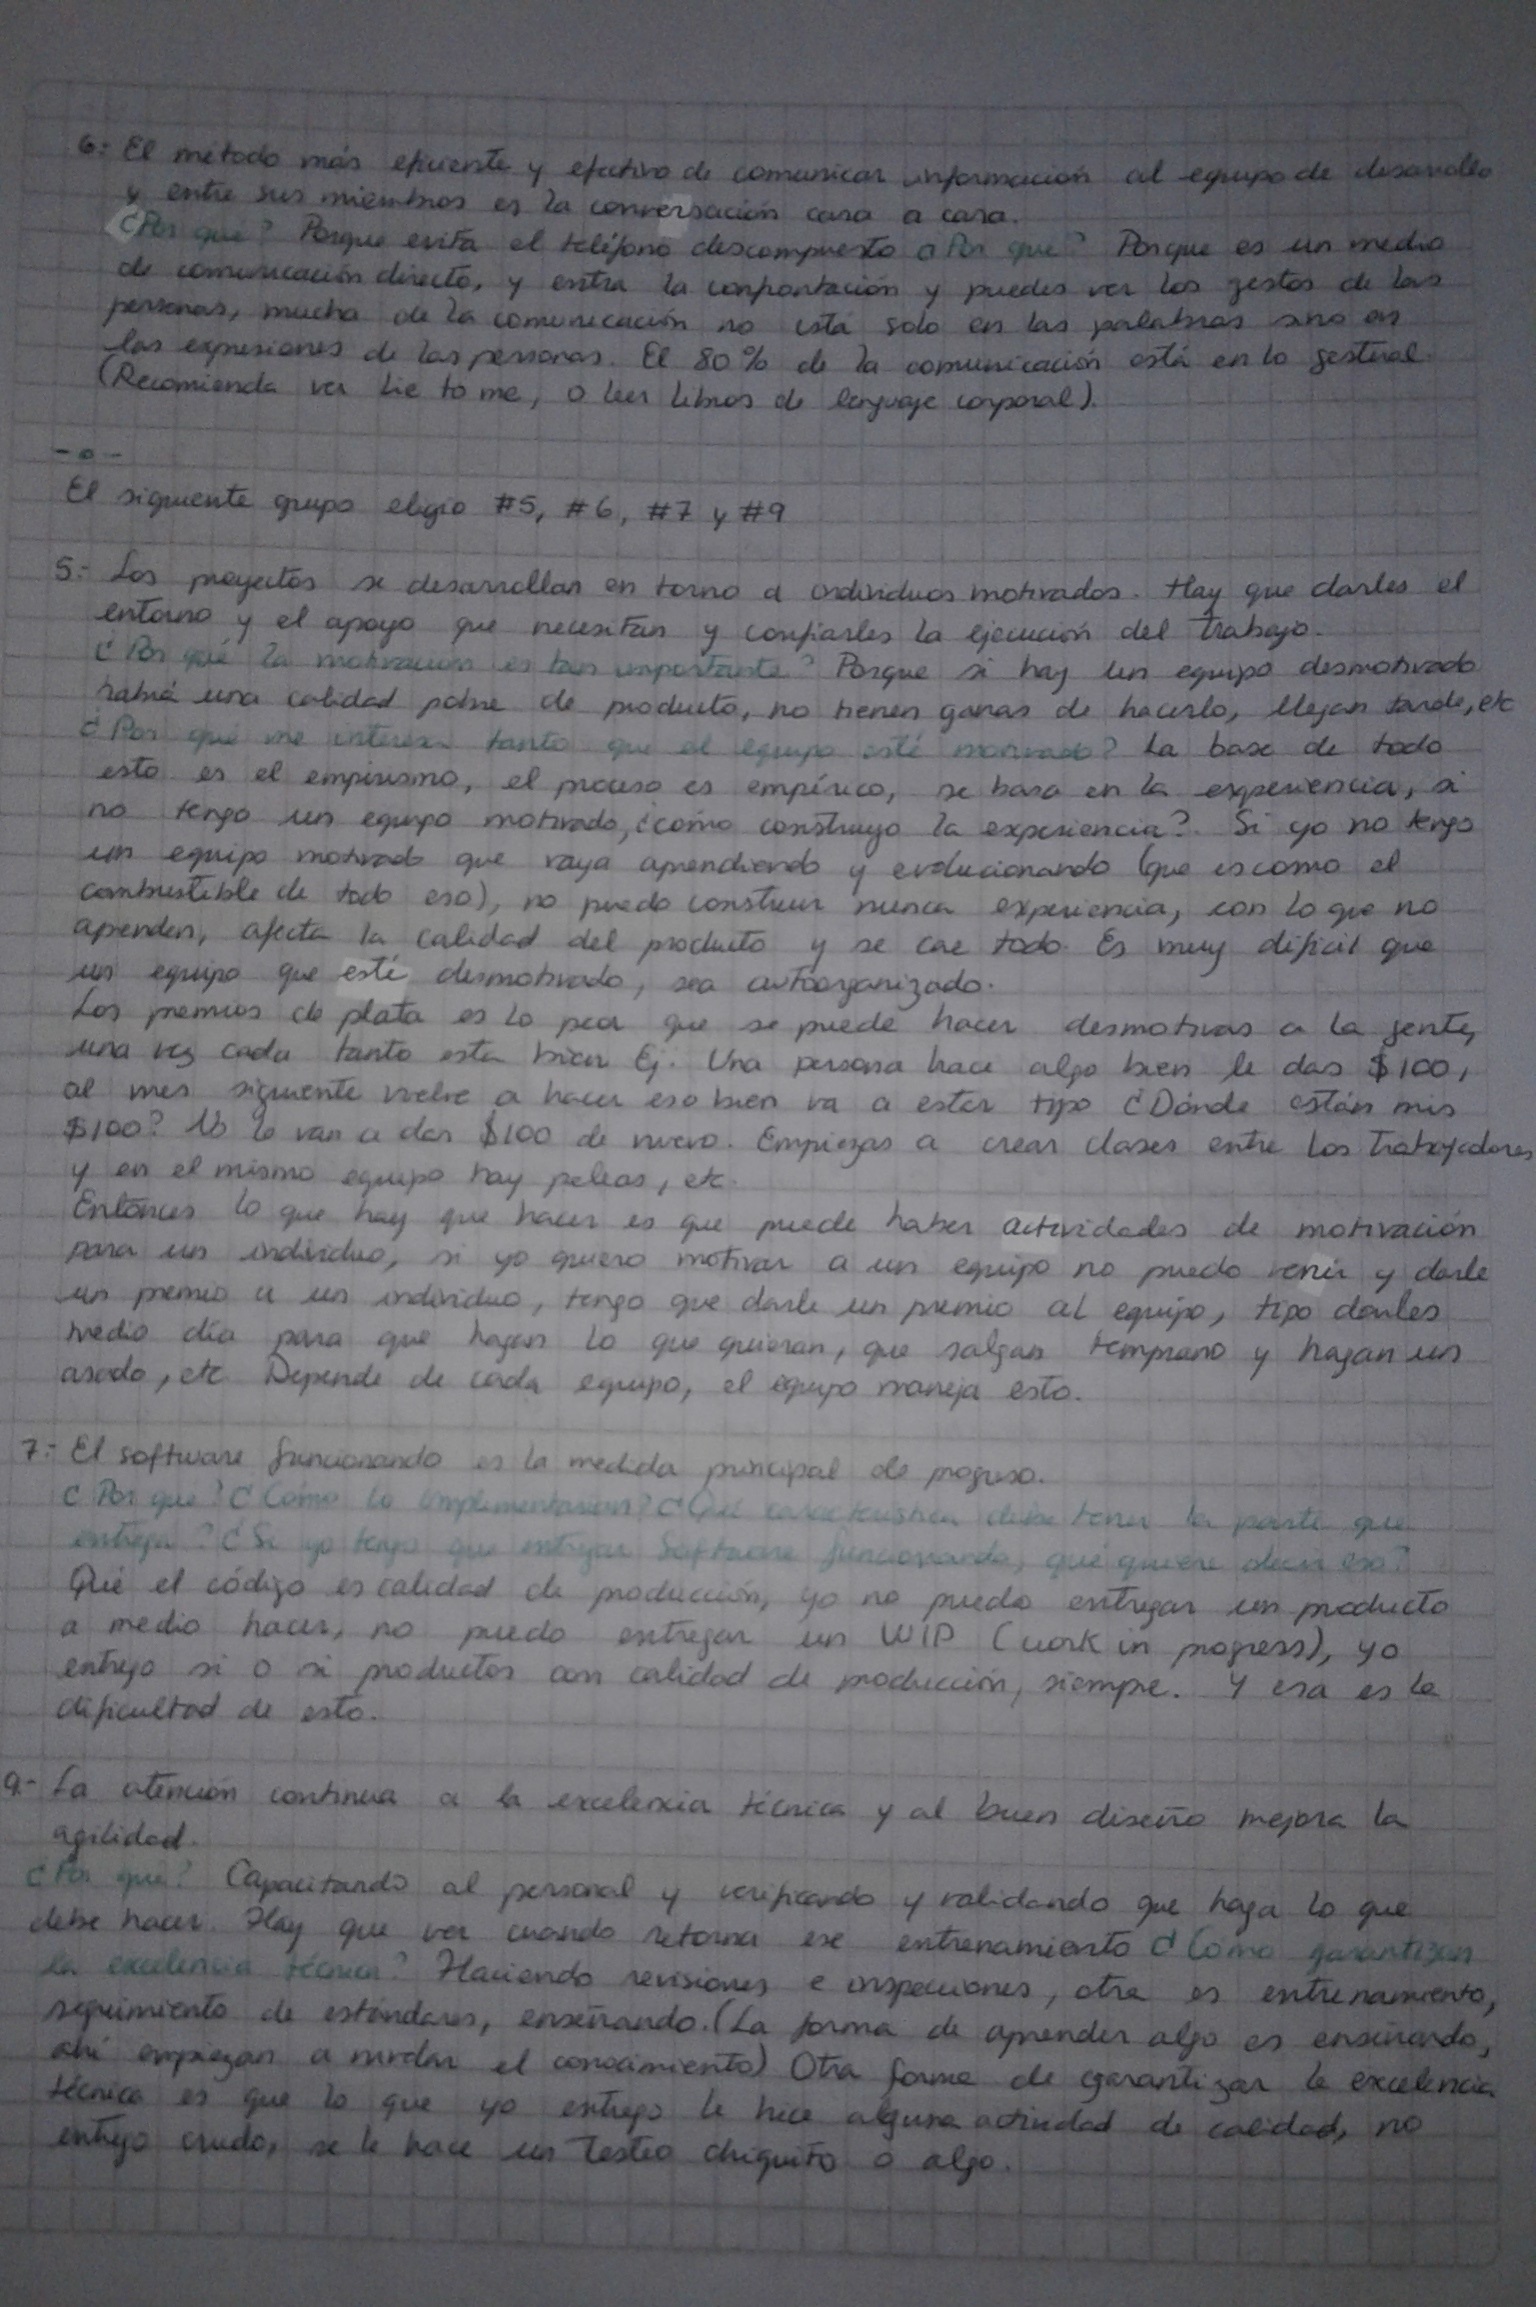 6.- El método más eficiente y efectivo de comunicar información al equipo de desarrollo
y entre sus miembros es la conversación cara a cara.
¿Por qué? Porque evita el teléfono descompuesto ¿Por qué? Porque es un medio
de comunicación directo, y entra la confrontación y puedes ver los gestos de las
personas, mucha de la comunicación no está solo en las palabras sino en
las expresiones de las personas. El 80% de la comunicación está en lo gestual.
(Recomienda ver Lie to me, o leer libros de lenguaje corporal).
- o -
El siguiente grupo eligió #5, #6, #7 y #9
5.- Los proyectos se desarrollan en torno a individuos motivados. Hay que darles el
entorno y el apoyo que necesitan y confiarles la ejecución del trabajo.
¿Por qué la motivación es tan importante? Porque si hay un equipo desmotivado
habrá una calidad pobre de producto, no tienen ganas de hacerlo, llegan tarde, etc
¿Por qué me interesa tanto que el equipo esté motivado? La base de todo
esto es el empirismo, el proceso es empírico, se basa en la experiencia, si
no tengo un equipo motivado, ¿cómo construyo la experiencia?. Si yo no tengo
un equipo motivado que vaya aprendiendo y evolucionando (que es como el
combustible de todo eso), no puedo construir nunca experiencia, con lo que no
aprenden, afecta la calidad del producto y se cae todo. Es muy difícil que
un equipo que esté desmotivado, sea autoorganizado.
Los premios de plata es lo peor que se puede hacer desmotivas a la gente,
una vez cada tanto esta bien Ej. Una persona hace algo bien le das $100,
al mes siguiente vuelve a hacer eso bien va a estar tipo ¿Dónde están mis
$100? No le van a dar $100 de nuevo. Empiezas a crear clases entre los trabajadores
y en el mismo equipo hay peleas, etc.
Entonces lo que hay que hacer es que puede haber actividades de motivación
para un individuo, si yo quiero motivar a un equipo no puedo venir y darle
un premio a un individuo, tengo que darle un premio al equipo, tipo darles
medio día para que hagan lo que quieran, que salgan temprano y hagan un
asado, etc. Depende de cada equipo, el equipo maneja esto.
7.- El software funcionando es la medida principal de progreso.
¿Por que? ¿Cómo lo implementarían? ¿Qué característica debe tener la parte que
entrega? ¿Si yo tengo que entregar Software funcionando, qué quiere decir eso?
Qué el código es calidad de producción, yo no puedo entregar un producto
a medio hacer, no puedo entregar un WIP (work in progress), yo
entrego si o si productos con calidad de producción, siempre. Y esa es la
dificultad de esto.
9.- La atención continua a la excelencia técnica y al buen diseño mejora la
agilidad.
¿Por qué? Capacitando al personal y verificando y validando que haga lo que
debe hacer. Hay que ver cuando retorna ese entrenamiento ¿Cómo garantizan
la excelencia técnica? Haciendo revisiones e inspecciones, otra es entrenamiento,
seguimiento de estándares, enseñando. (La forma de aprender algo es enseñando,
ahí empiezan a nivelar el conocimiento) Otra forma de garantizar la excelencia
técnica es que lo que yo entrego le hice alguna actividad de calidad, no
entrego crudo, se le hace un Testeo chiquito o algo.